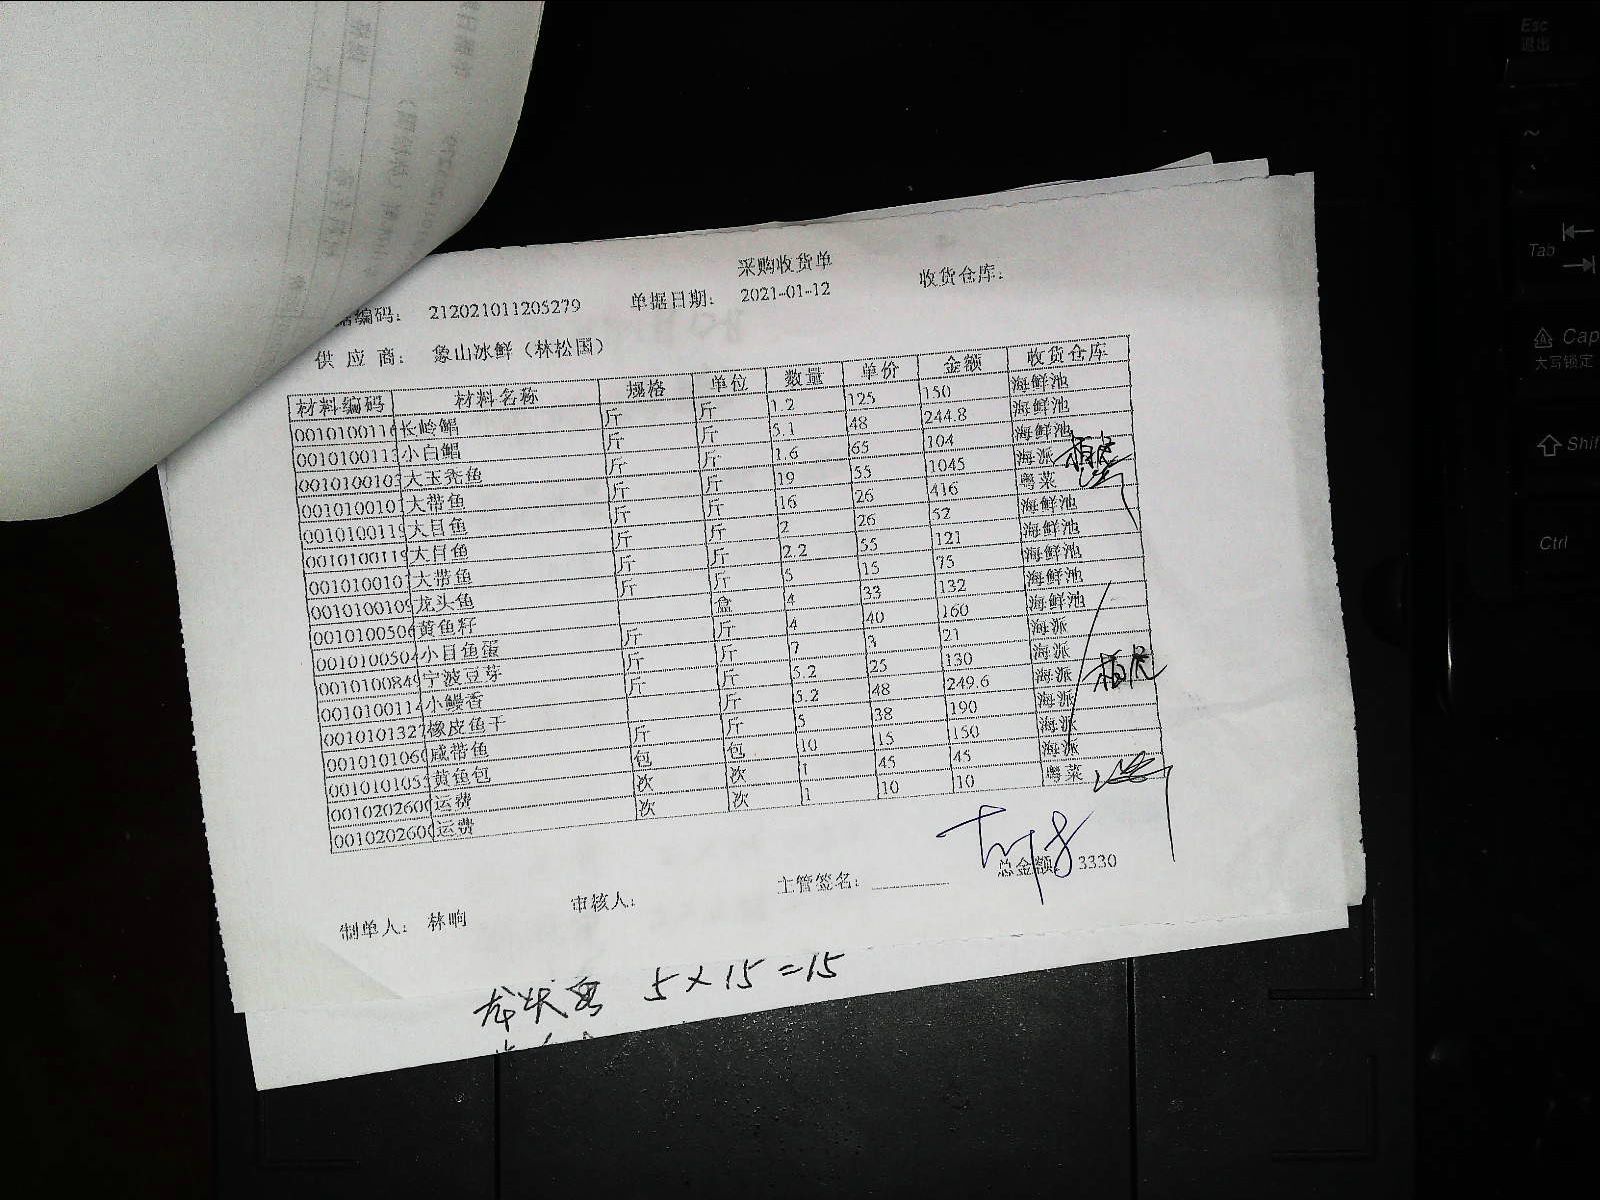 采购收货单
据编码： 212021011205279 单据日期： 2021-01-12 收货仓库：
供 应 商： 象山冰鲜（林松国）
材料编码 材料名称 规格 单位 数量 单价 金额 收货仓库
0010100116 长岭鲳 斤 斤 1.2 125 150 海鲜池
0010100113 小白鲳 斤 斤 5.1 48 244.8 海鲜池
0010100103 大玉秃鱼 斤 斤 1.6 65 104 海鲜池
001010010 大带鱼 斤 斤 19 55 1045 海派
0010100119 大目鱼 斤 斤 16 26 416 粤菜
0010100119 大目鱼 斤 斤 2 26 52 海鲜池
001010010 大带鱼 斤 斤 2.2 55 121 海鲜池
0010100109 龙头鱼 斤 斤 5 15 75 海鲜池
0010100506 黄鱼籽 盒 4 33 132 海鲜池
0010100504 小目鱼蛋 斤 斤 4 40 160 海鲜池
0010100849 宁波豆芽 斤 斤 7 3 21 海派
0010100114 小鳗香 斤 斤 5.2 25 130 海派
0010101327 橡皮鱼干 斤 5.2 48 249.6 海派
0010101060 咸带鱼 斤 斤 5 38 190 海派
001010105 黄鱼包 包 包 10 15 150 海派
0010202600 运费 次 次 1 45 45 海派
0010202600 运费 次 次 1 10 10 粤菜
总金额： 3330
制单人： 林晌 审核人： 主管签名：
5×15=15